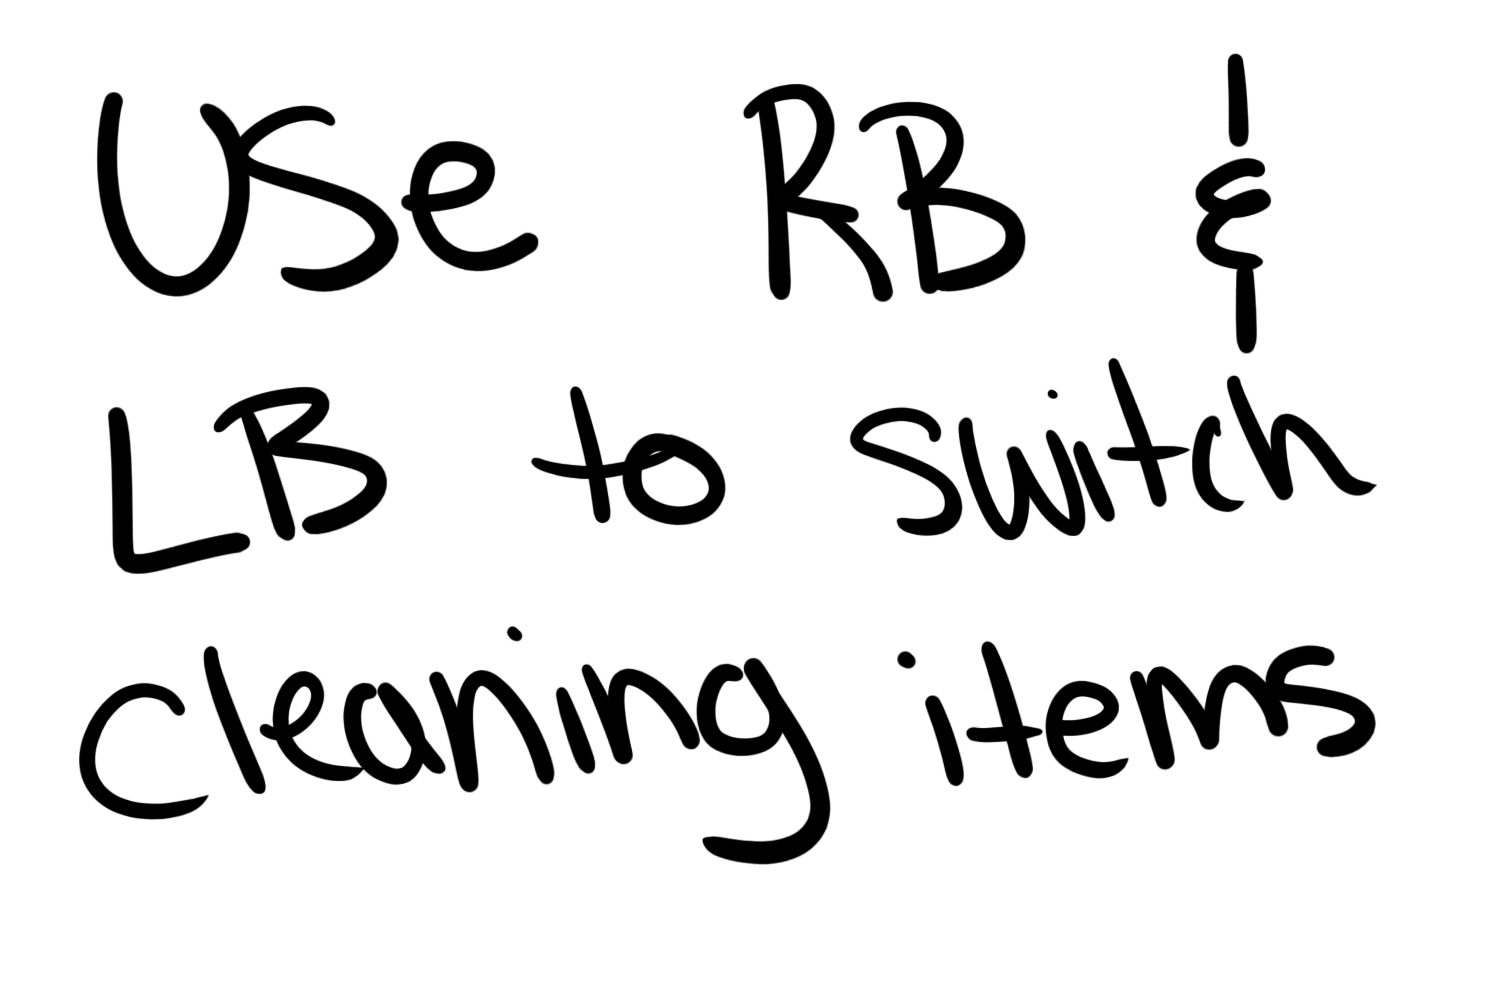 Use RB &
LB to switch
cleaning items